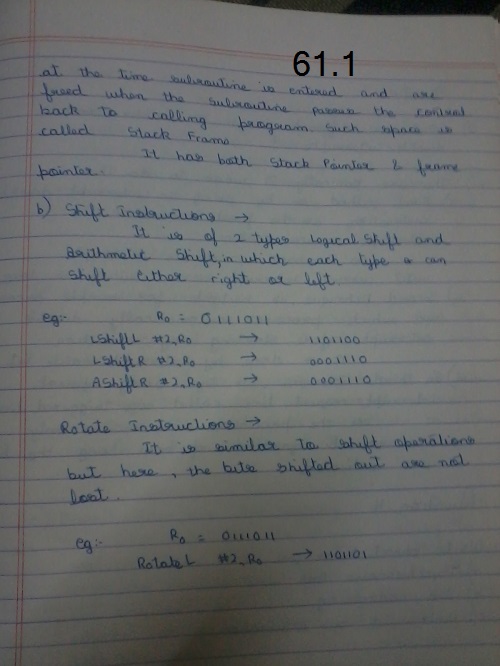 61.1
at the time subroutine is entered and are
freed when the subroutine passes the control
back to calling program. Such space is
called Stack Frame
It has both Stack Pointer & frame
pointer.
b) Shift Instructions →
It is of 2 types Logical Shift and
Arithmetic Shift, in which each type can
Shift either right or left.
eg:- R0 = 0111011
LShiftL #2, R0 → 1101100
LShiftR #2, R0 → 0001110
AShiftR #2, R0 → 0001110
Rotate Instructions →
It is similar to shift operations
but here, the bits shifted out are not
lost.
eg:- R0 = 0111011
RotateL #2, R0 → 1101101